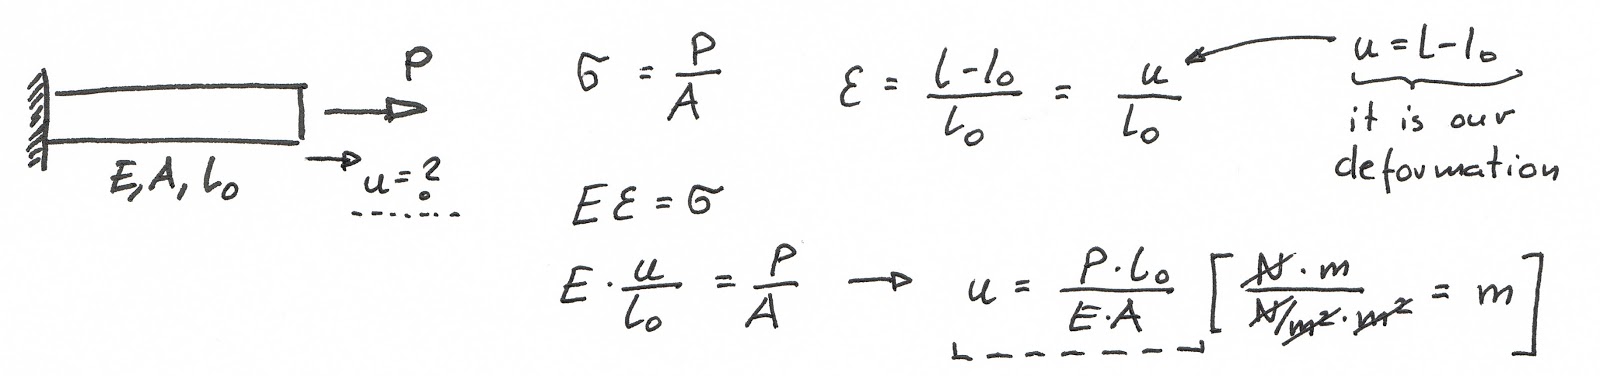 P
E, A, l₀
u = ?
σ = P/A
ε = (l-l₀)/l₀ = u/l₀
u = l-l₀
it is our
deformation
Eε = σ
E · u/l₀ = P/A → u = P·l₀/E·A [N·m / N/m²·m² = m]